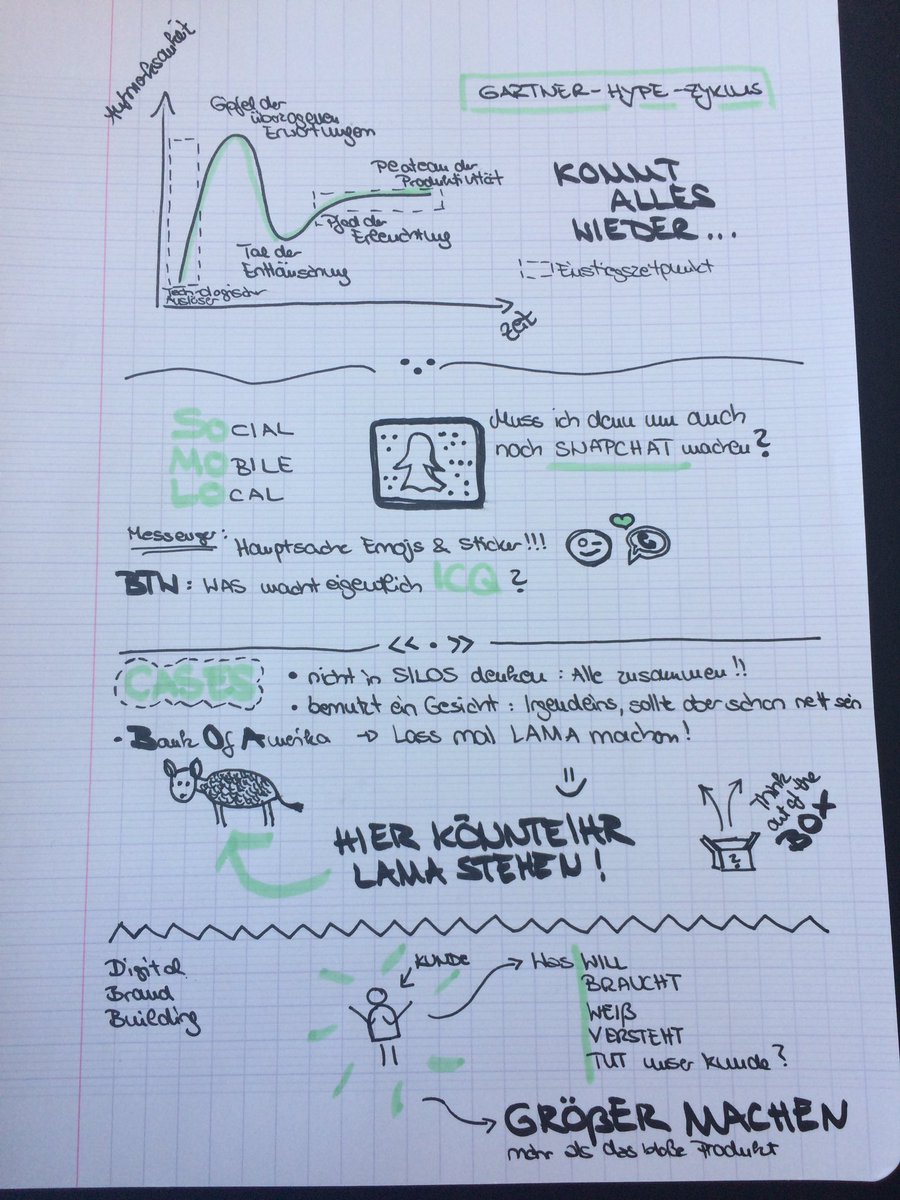 Aufmerksamkeit
GARTNER-HYPE-ZYKLUS
Gipfel der
überzogenen
Erwartungen
Plateau der
Produktivität
KOMMT
ALLES
WIEDER...
Pfad der
Erleuchtung
Tal der
Enttäuschung
Einstiegszeitpunkt
Technologischer
Auslöser
Zeit
SOCIAL
MOBILE
LOCAL
Muss ich denn nun auch
noch SNAPCHAT machen?
Messenger: Hauptsache Emojis & Sticker!!!
BTW: WAS macht eigentlich ICQ?
CASES
• nicht in SILOS denken: Alle zusammen!!
• benutzt ein Gesicht: Irgendeins, sollte aber schon nett sein
• Bank Of Amerika → Lass mal LAMA machen!
HIER KÖNNTE IHR
LAMA STEHEN!
?
Think
out of the
BOX
Digital
Brand
Building
KUNDE
Was WILL
BRAUCHT
WEIß
VERSTEHT
TUT unser Kunde?
GRÖßER MACHEN
mehr als das bloße Produkt